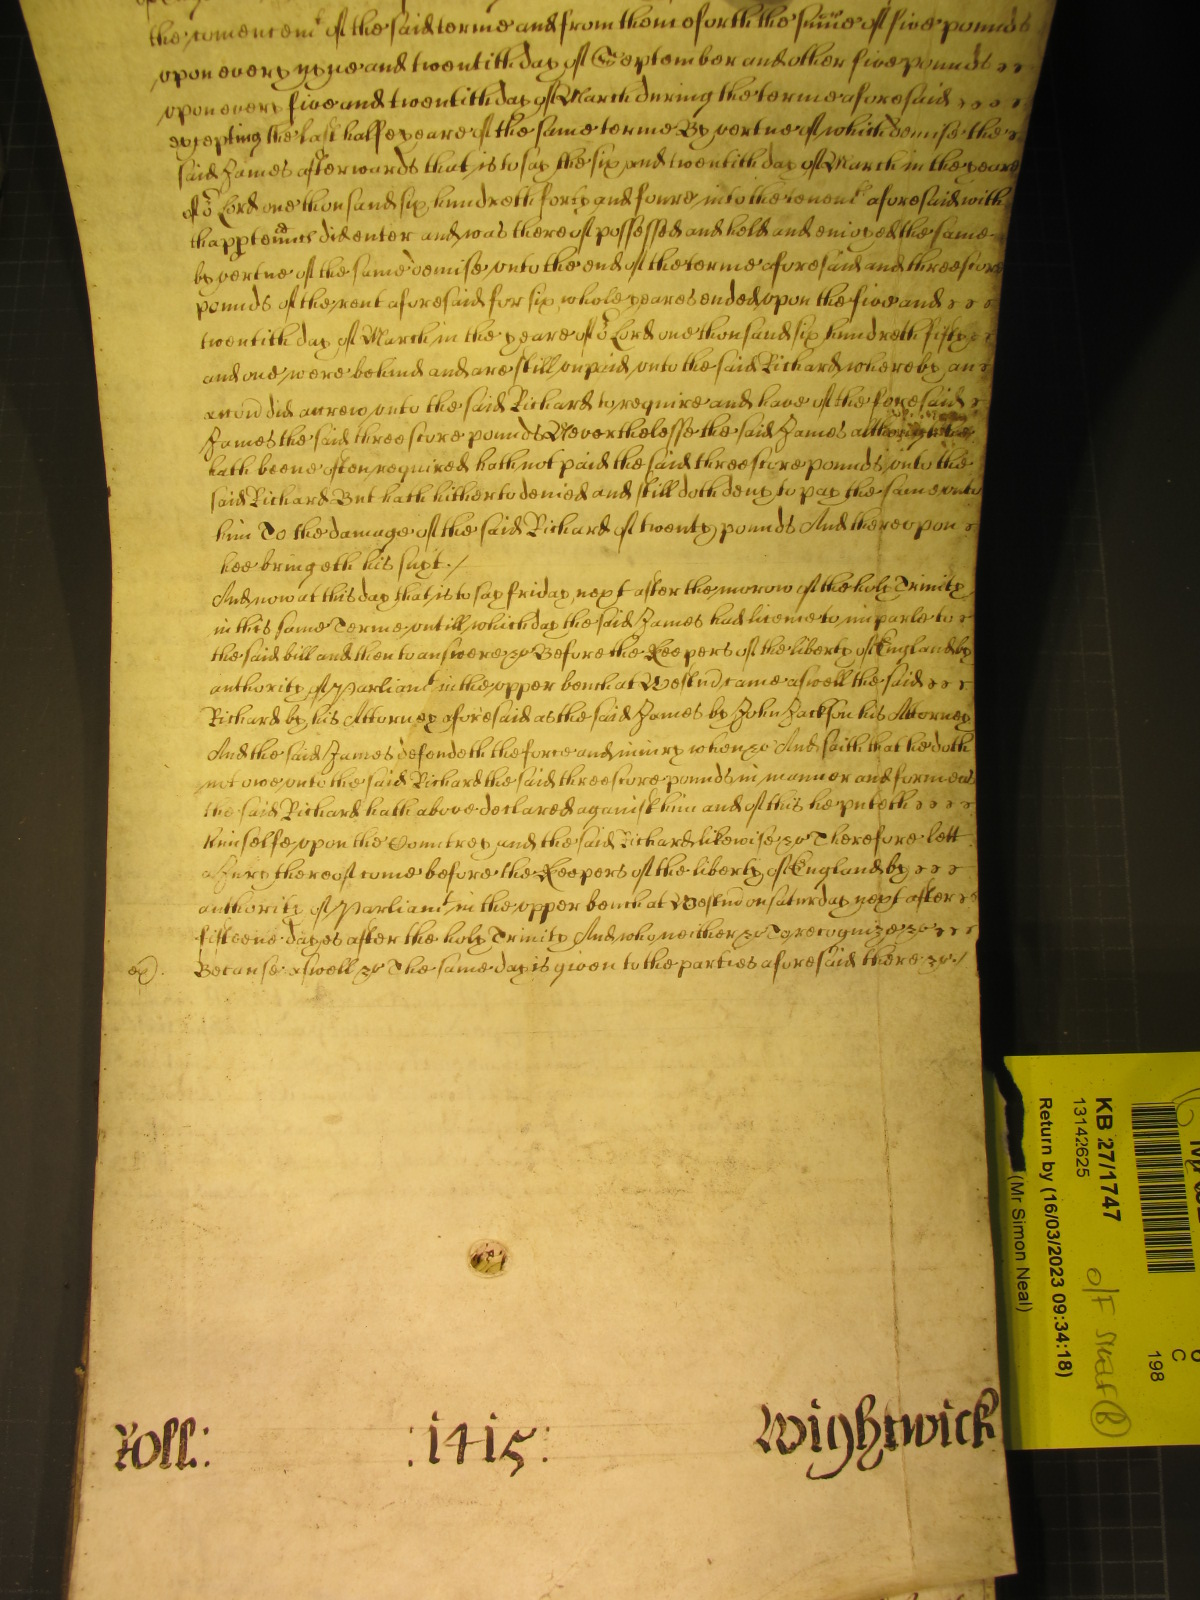 the comencemt of the said terme and from thenceforth the summe of five pounds
upon every nyne and twentith day of September and other five pounds
upon every five and twentith day of March during the terme aforesaid
excepting the last halfe yeare of the same terme By vertue of which demise the
said James afterwards that is to say the six and twentith day of March in the yeare
of or Lord one thousand six hundreth forty and foure into the tenemt aforesaid with
thappurtenncs did enter and was thereof possessed and held and enioyed the same
by vertue of the same demise unto the end of the terme aforesaid and threescore
pounds of the rent aforesaid for six whole yeares ended upon the five and
twentith day of March in the yeare of or Lord one thousand six hundreth fifty
and one were behind and are still unpaid unto the said Richard whereby an
accon did accrew unto the said Richard to require and have of the foresaid
James the said threescore pounds Neverthelesse the said James although he
hath beene often required hath not paid the said threescore pounds unto the
said Richard But hath hitherto denied and still doth deny to pay the same unto
him To the damage of the said Richard of twenty pounds And thereupon
hee bringeth his suyt ./
And now at this day that is to say Friday next after the morow of the holy Trinity
in this same Terme untill which day the said James had licence to imparle to
the said bill and then to answere &c Before the Keepers of the liberty of England by
authority of Parliamt in the upper bench at Westmr came aswell the said
Richard by his Attorney aforesaid as the said James by John Jackson his Attorney
And the said James defendeth the force and iniury when &c And saith that he doth
not owe unto the said Richard the said threescore pounds in manner and forme as
the said Richard hath above declared against him and of this he putteth
himselfe upon the Countrey and the said Richard likewise &c Therefore lett
a Jury thereof come before the Keepers of the liberty of England by
authority of Parliamt in the upper bench at Westmr on Saturday next after
fifteene dayes after the holy Trinity And who neither &c To recognize &c
Because aswell &c The same day is given to the parties aforesaid there &c ./
Roll: :1415: Wightwick
KB 27/1747
13142625
Return by (16/03/2023 09:34:18)
(Mr Simon Neal)
C
198